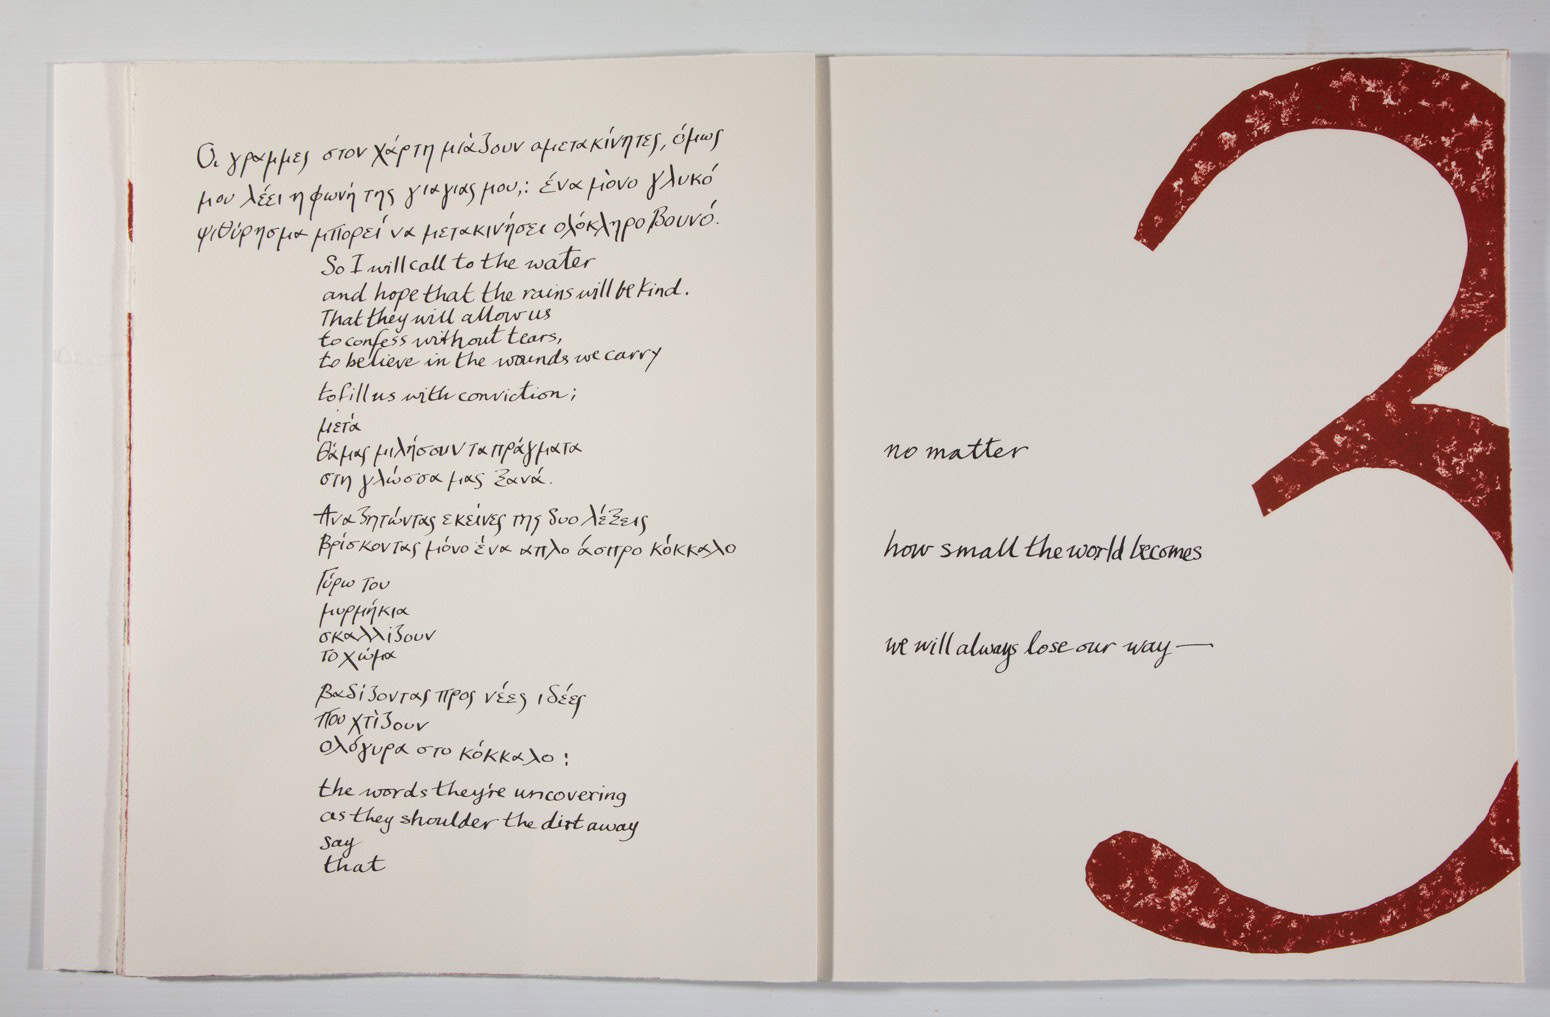 Οι γραμμες στον χάρτη μιάζουν αμετακίνητες, όμως
μου λέει η φωνή της γιαγιας μου,: ένα μόνο γλυκό
ψιθύρησμα μπορεί να μετακινήσει ολόκληρο βουνό.
So I will call to the water
and hope that the rains will be kind.
That they will allow us
to confess without tears,
to believe in the wounds we carry
to fill us with conviction;
μετά
θά μας μιλήσουν τα πράγματα
στη γλώσσα μας ξανά.
Αναζητώντας εκείνες της δυο λέξεις
βρίσκοντας μόνο ένα απλο άσπρο κόκκαλο
Γύρω του
μυρμήκια
σκαλλίζουν
το χώμα
βαδίζοντας προς νέες ιδέες
που χτίζουν
ολόγυρα στο κόκκαλο:
the words they're uncovering
as they shoulder the dirt away
say
that
3
no matter
how small the world becomes
we will always lose our way—